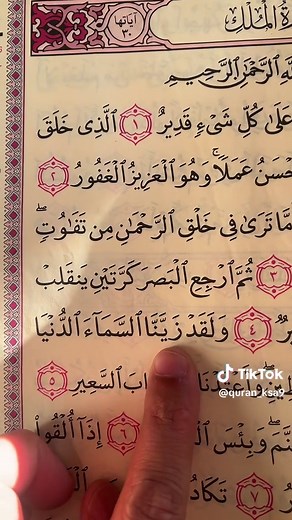 ةُ الْمُلْكِ آيَاتُهَا ٣٠
ٱلرَّحْمَٰنِ ٱلرَّحِيمِ
عَلَىٰ كُلِّ شَىْءٍ قَدِيرٌ ١ ٱلَّذِى خَلَقَ
حْسَنُ عَمَلًا ۚ وَهُوَ ٱلْعَزِيزُ ٱلْغَفُورُ ٢
مَّا تَرَىٰ فِى خَلْقِ ٱلرَّحْمَٰنِ مِن تَفَٰوُتٍ ۖ
٣ ثُمَّ ٱرْجِعِ ٱلْبَصَرَ كَرَّتَيْنِ يَنقَلِبْ
٤ وَلَقَدْ زَيَّنَّا ٱلسَّمَآءَ ٱلدُّنْيَا
وَأَعْتَدْنَا ابَ ٱلسَّعِيرِ ٥
نَّمَ ۖ وَبِئْسَ ٦ إِذَآ أُلْقُوا۟
٧ تَكَادُ
TikTok
@quran_ksa9